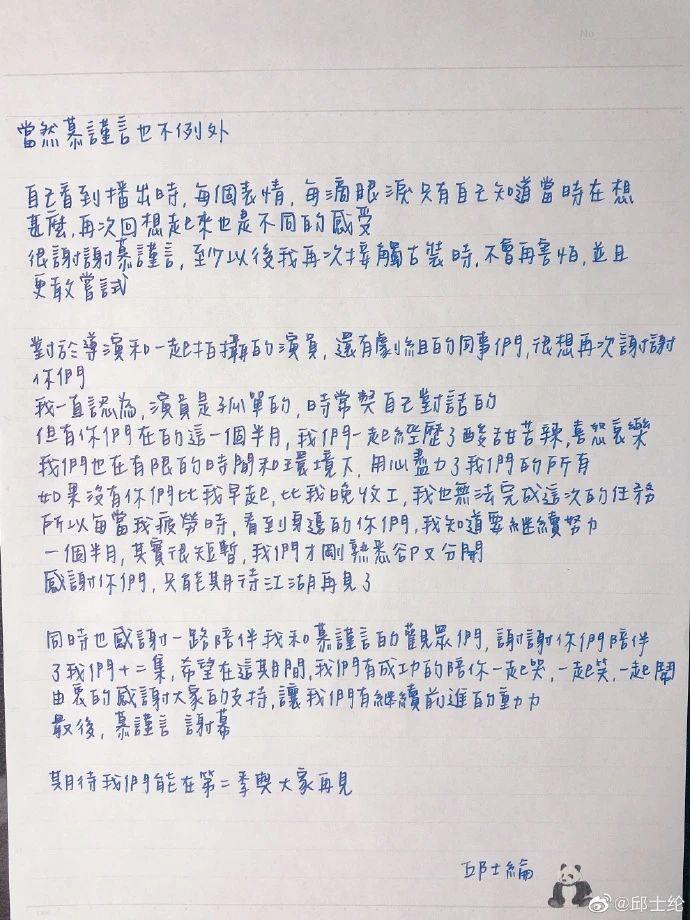 No
當然慕謹言也不例外
自己看到播出時,每個表情,每滴眼淚只有自己知道當時在想
甚麼,再次回想起來也是不同的感受
很謝謝慕謹言,至少以後我再次接觸古裝時,不會再害怕,並且
更敢嘗試
對於導演和一起拍攝的演員,還有劇組的同事們,很想再次謝謝
你們
我一直認為,演員是孤單的,時常與自己對話的
但有你們在的這一個半月,我們一起經歷了酸甜苦辣,喜怒哀樂
我們也在有限的時間和環境下,用心盡力了我們的所有
如果沒有你們比我早起,比我晚收工,我也無法完成這次的任務
所以每當我疲勞時,看到身邊的你們,我知道要繼續努力
一個半月,其實很短暫,我們才剛熟悉卻又分開
感謝你們,只能期待江湖再見了
同時也感謝一路陪伴我和慕謹言的觀眾們,謝謝你們陪伴
了我們十二集,希望在這期間,我們有成功的陪你一起哭,一起笑,一起鬧
由衷的感謝大家的支持,讓我們有繼續前進的動力
最後,慕謹言 謝幕
期待我們能在第二季與大家再見
邱士綸
@邱士纶